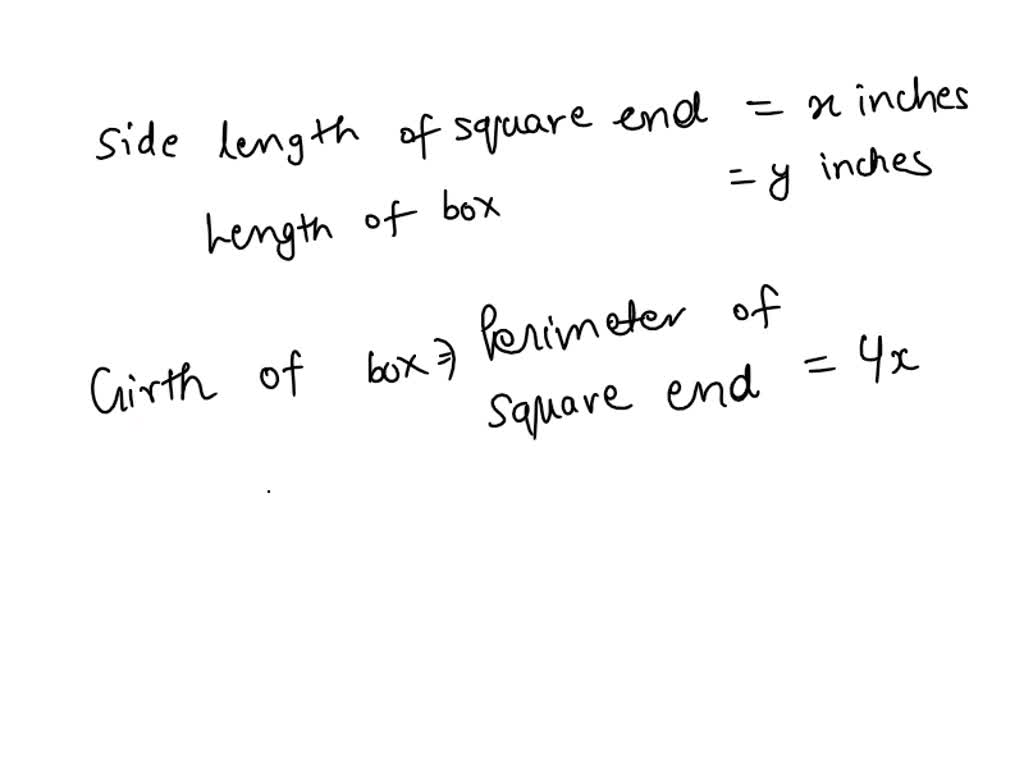 Side length of square end = x inches
Length of box = y inches
Girth of box ⇒ Perimeter of
square end = 4x